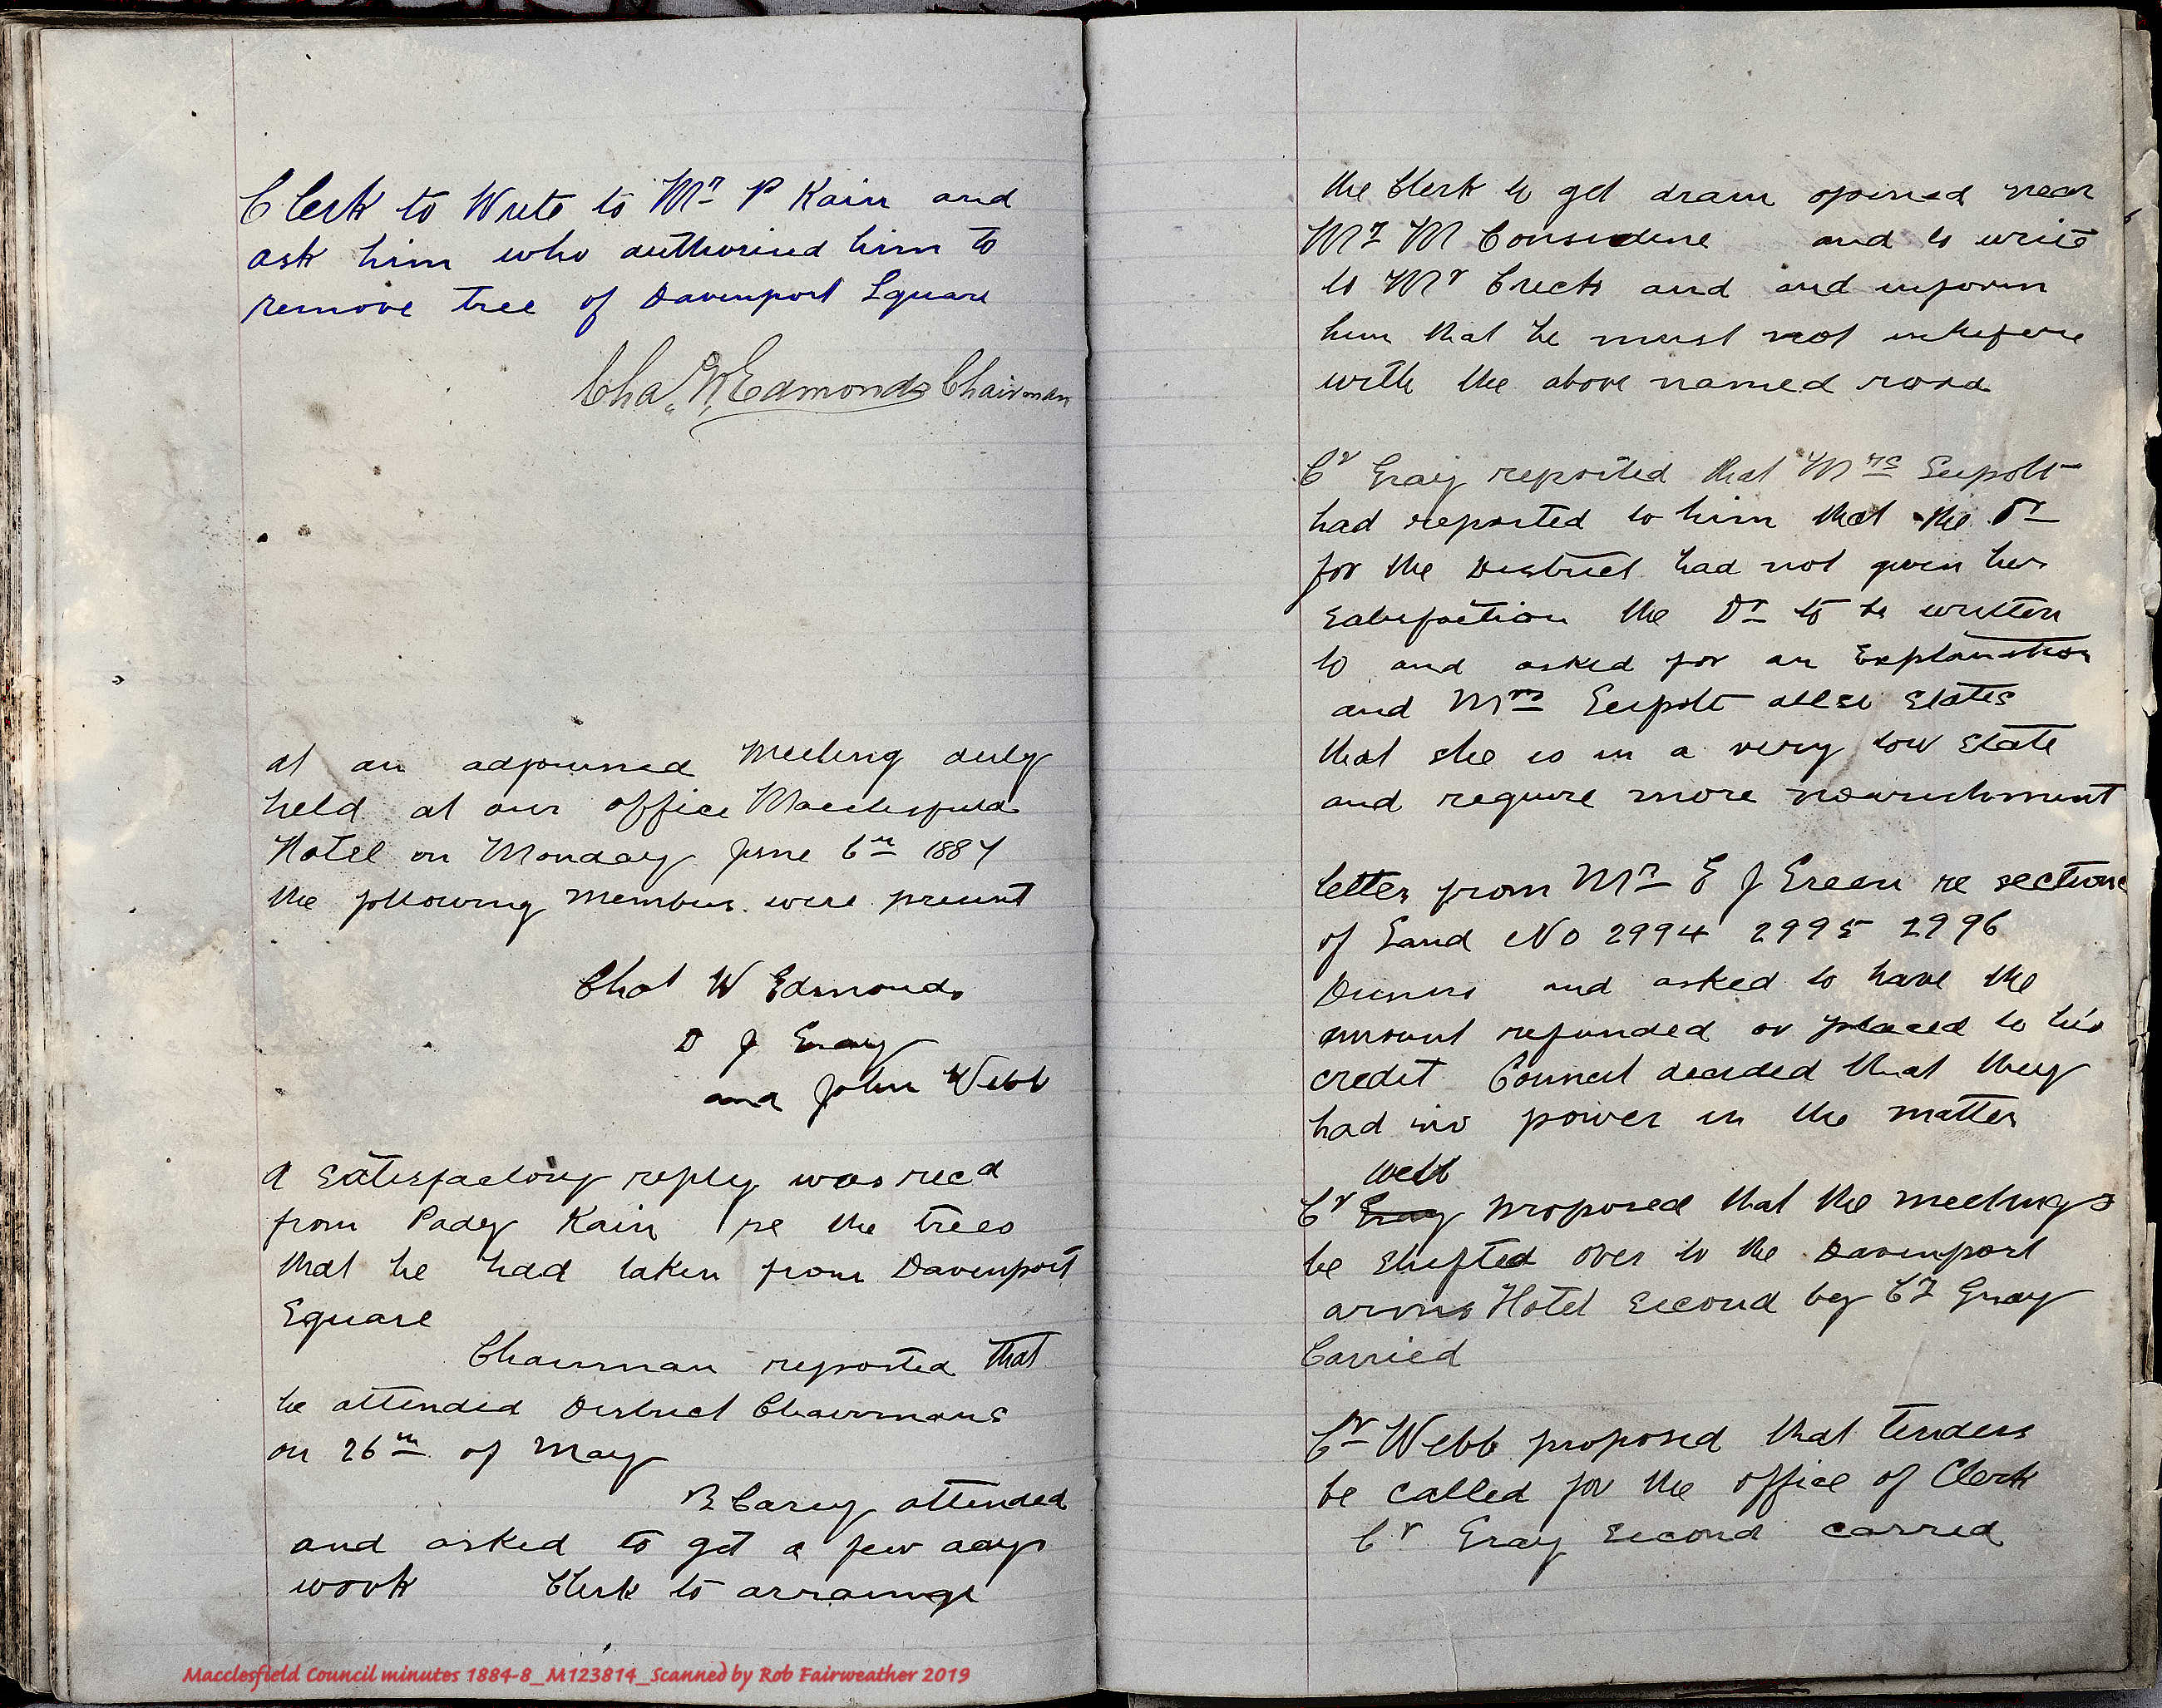 Clerk to Write to Mr P Kain and
ask him who authorised him to
remove tree of Davenport Square
Chas W Edmonds Chairman
at an adjourned Meeting duly
held at our office Macclesfield
Hotel on Monday June 6th 1887
the following Members were present
Chas W Edmonds
D J Gray
and John Webb
A Satisfactory reply was recd
from Pady Kain re the trees
that he had taken from Davenport
Square
Chairman reported that
he attended District Chairmans
on 26th of May
B Carey attended
and asked to get a few days
work Clerk to arrainge
the Clerk to get drain opened near
Mr M Considine and to write
to Mr and and inform
him that he must not interfere
with the above named road
Cr Gray reported that Mrs
had reported to him that the Dr
for the District had not given her
Satisfaction the Dr to be written
to and asked for an Explanation
and Mrs allso States
that she is in a very low State
and require more nourishment
letter from Mr E J Green re sections
of Land No 2994 2995 2996
and asked to have the
amount refunded or placed to his
credit Council decided that they
had no power in the matter
Webb
Cr Gray proposed that the meetings
be Shifted over to the Davenport
arms Hotel Second by Cr Gray
Carried
Cr Webb proposed that tenders
be called for the office of Clerk
Cr Gray Second carred
Macclesfield Council minutes 1884-8_M123814_Scanned by Rob Fairweather 2019